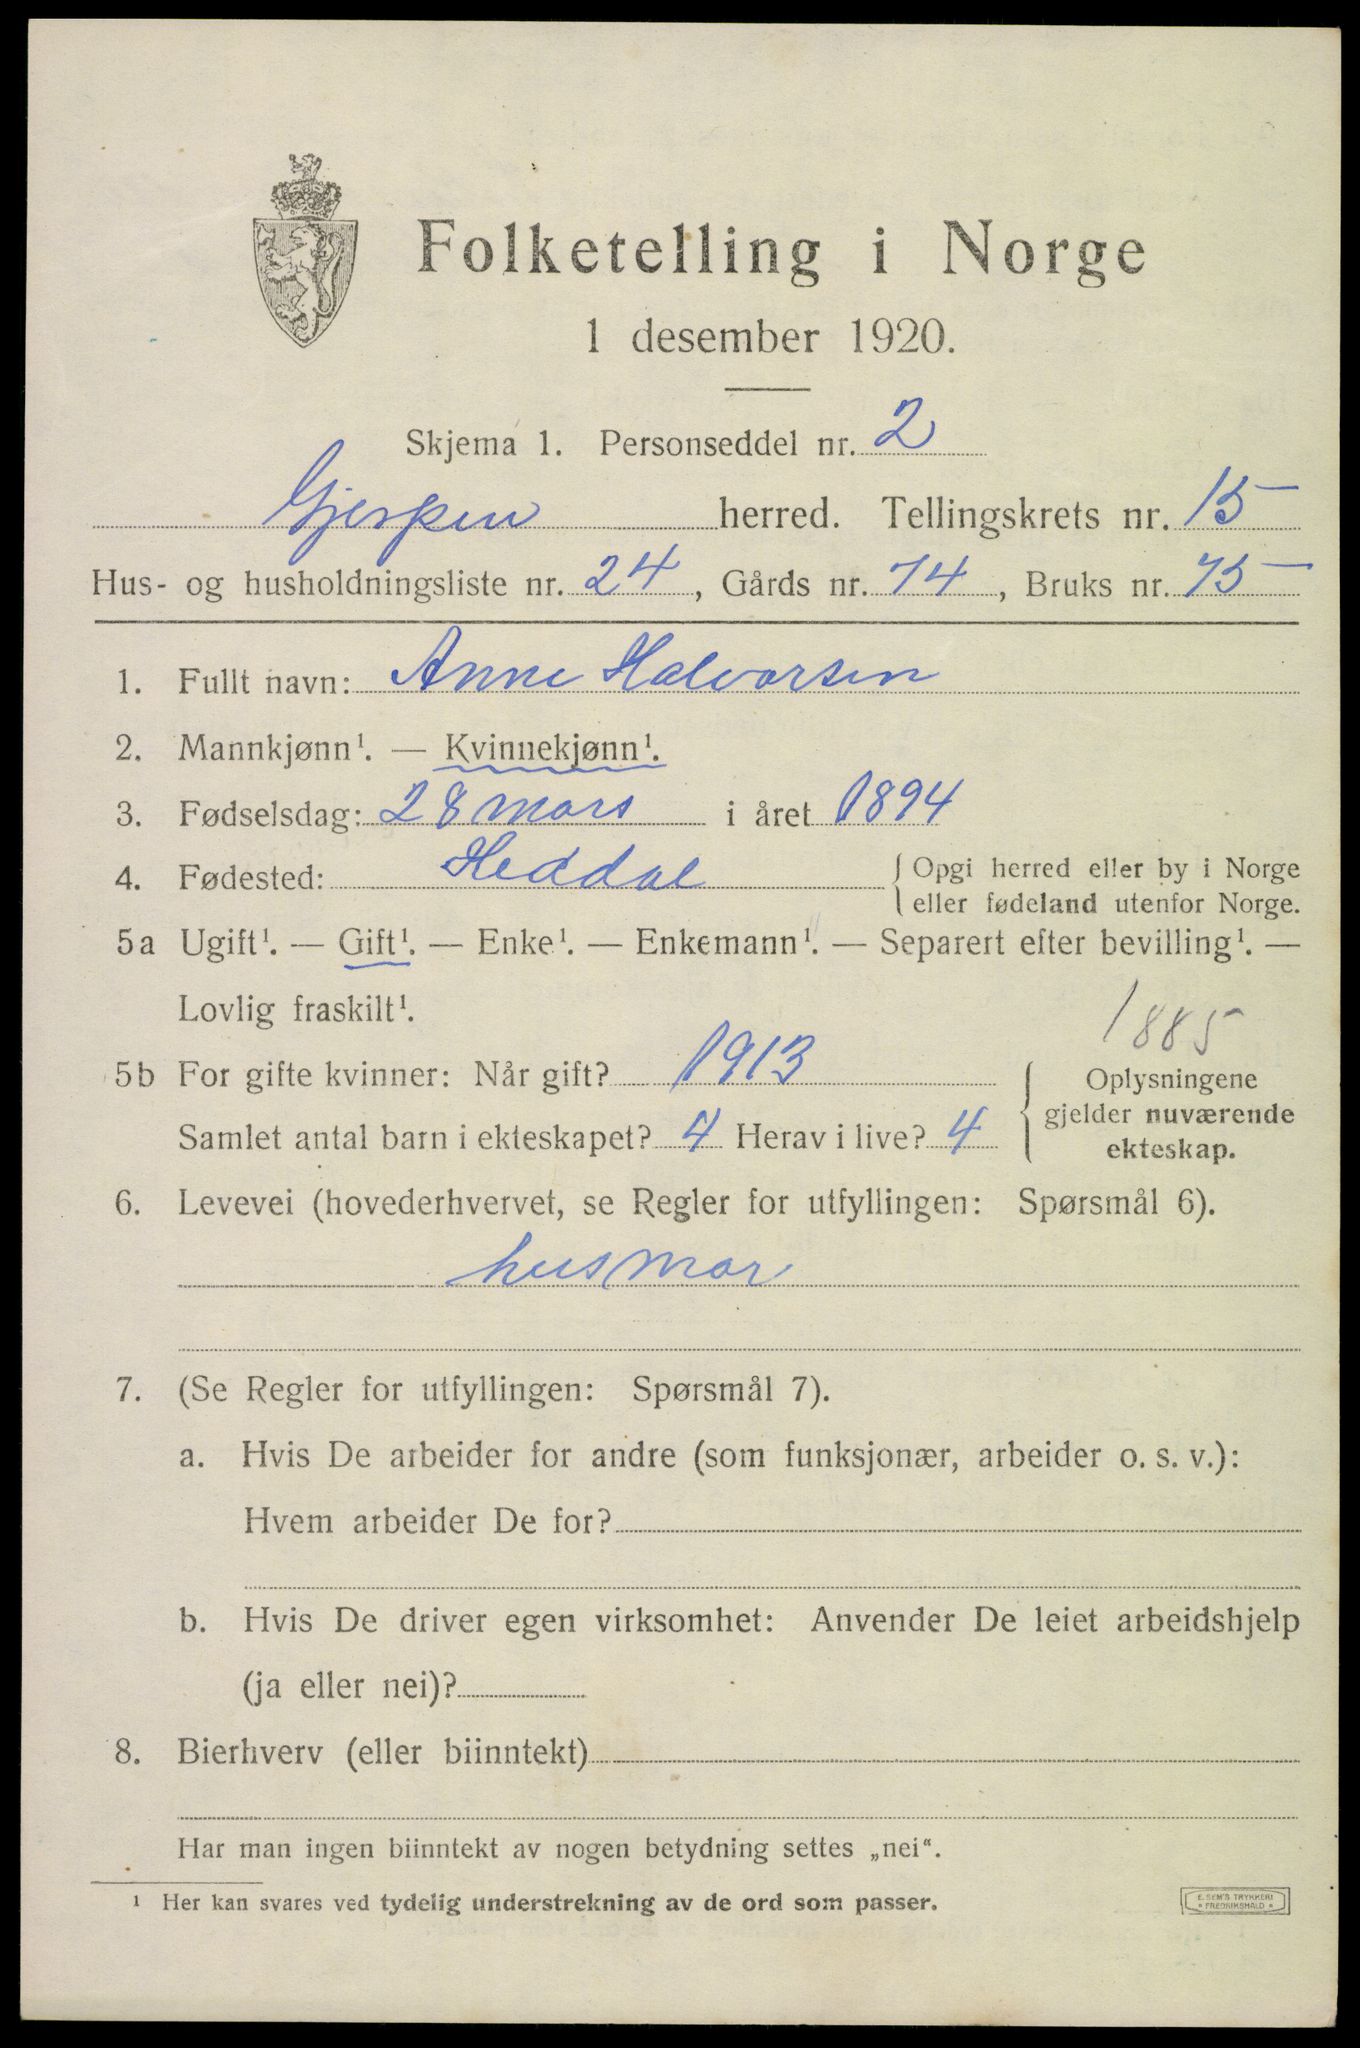 Folketelling i Norge
1 desember 1920.
Skjema 1. Personseddel nr. 2
Gjerpen herred. Tellingskrets nr. 15
Hus- og husholdningsliste nr. 24, Gårds nr. 14, Bruks nr. 75
1. Fullt navn: Anne Halvorsen
2. Mannkjønn¹. — Kvinnekjønn¹.
3. Fødselsdag: 28 mars i året 1894
4. Fødested: Heddal { Opgi herred eller by i Norge
eller fødeland utenfor Norge.
5a Ugift¹. — Gift¹. — Enke¹. — Enkemann¹. — Separert efter bevilling¹. —
Lovlig fraskilt¹.
1885
5b For gifte kvinner: Når gift? 1913
Samlet antal barn i ekteskapet? 4 Herav i live? 4
{ Oplysningene
gjelder nuværende
ekteskap.
6. Levevei (hovederhvervet, se Regler for utfyllingen: Spørsmål 6).
husmor
7. (Se Regler for utfyllingen: Spørsmål 7).
a. Hvis De arbeider for andre (som funksjonær, arbeider o. s. v.):
Hvem arbeider De for?
b. Hvis De driver egen virksomhet: Anvender De leiet arbeidshjelp
(ja eller nei)?
8. Bierhverv (eller biinntekt)
Har man ingen biinntekt av nogen betydning settes „nei“.
¹ Her kan svares ved tydelig understrekning av de ord som passer.
E. SEM'S TRYKKERI
* FREDRIKSHALD *